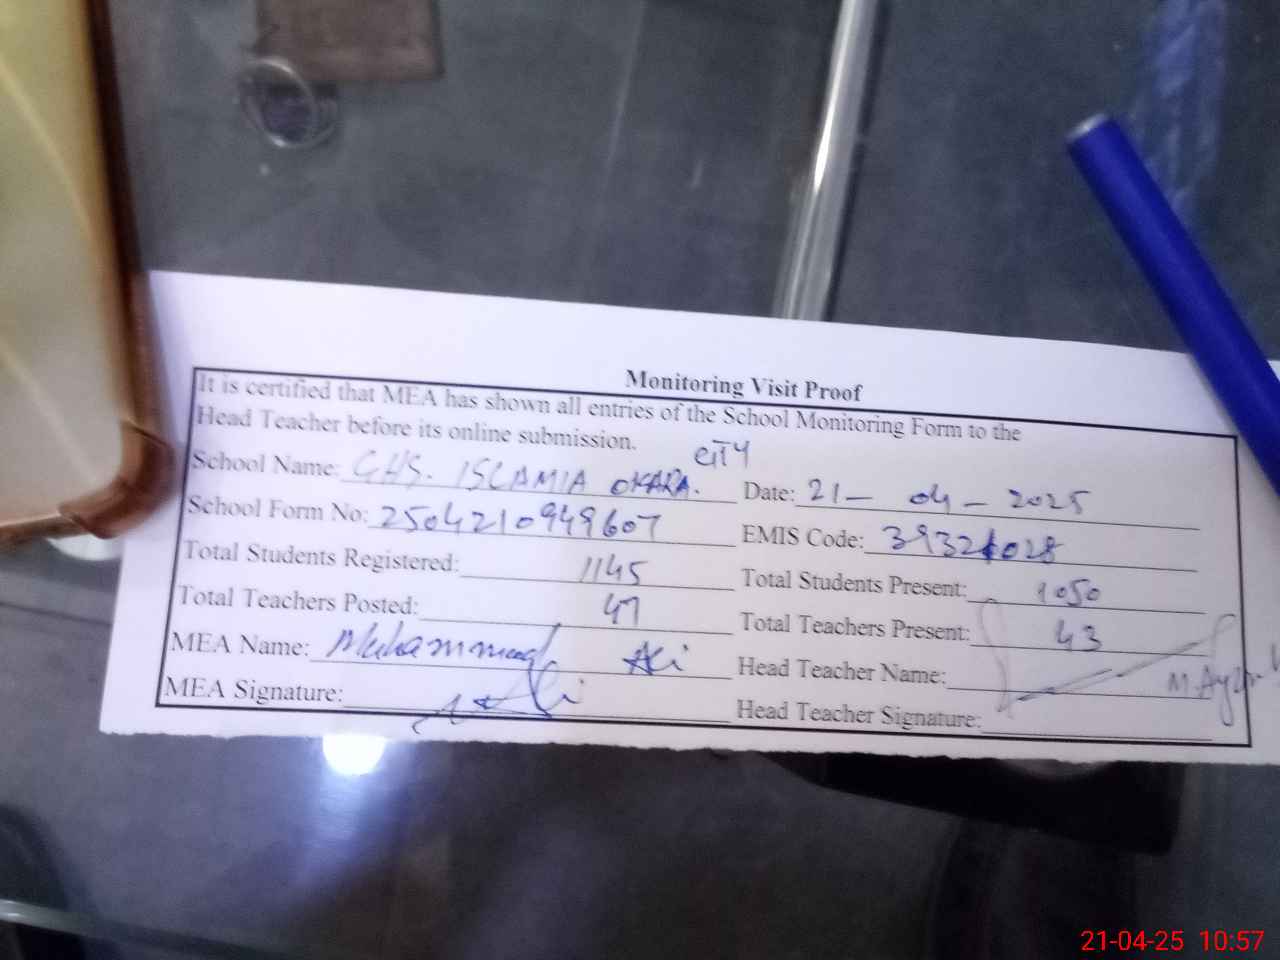 Monitoring Visit Proof
It is certified that MEA has shown all entries of the School Monitoring Form to the
Head Teacher before its online submission.
School Name: GHS. ISLAMIA OKARA. CITY Date: 21- 04-2025
School Form No: 2504210949607 EMIS Code:
Total Students Registered: 1145 Total Students Present: 1050
Total Teachers Posted: 47 Total Teachers Present: 43
MEA Name: Muhammad Ali Head Teacher Name:
MEA Signature: Head Teacher Signature:
21-04-25 10:57